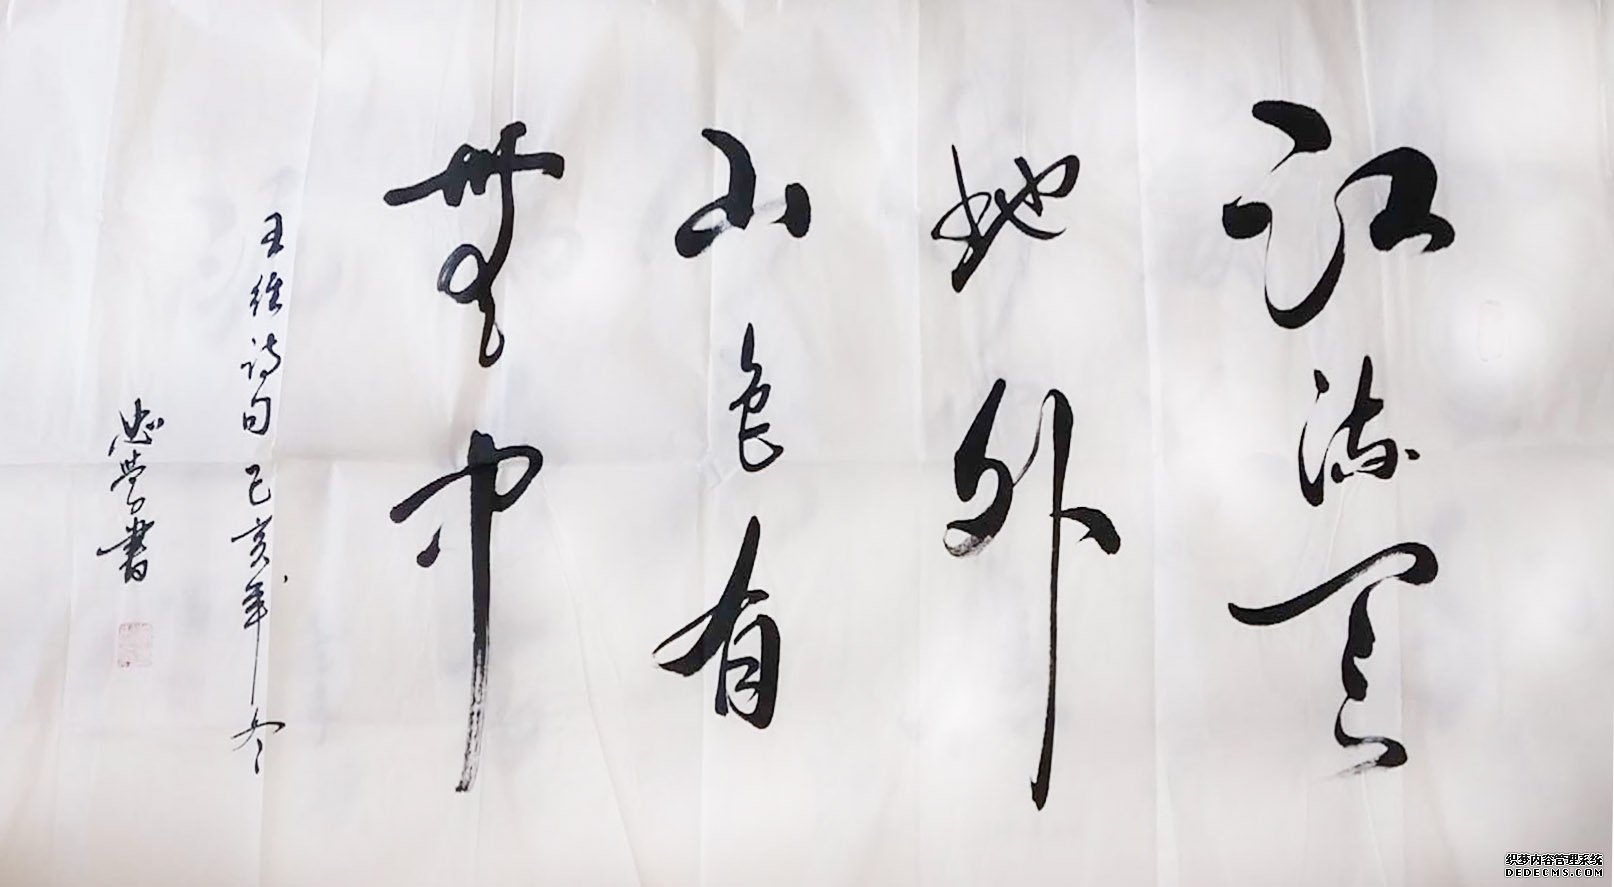 江流天
地外
山色有
無中
王维诗句 己亥年冬
忠 書
织梦内容管理系统
DEDECMS.COM